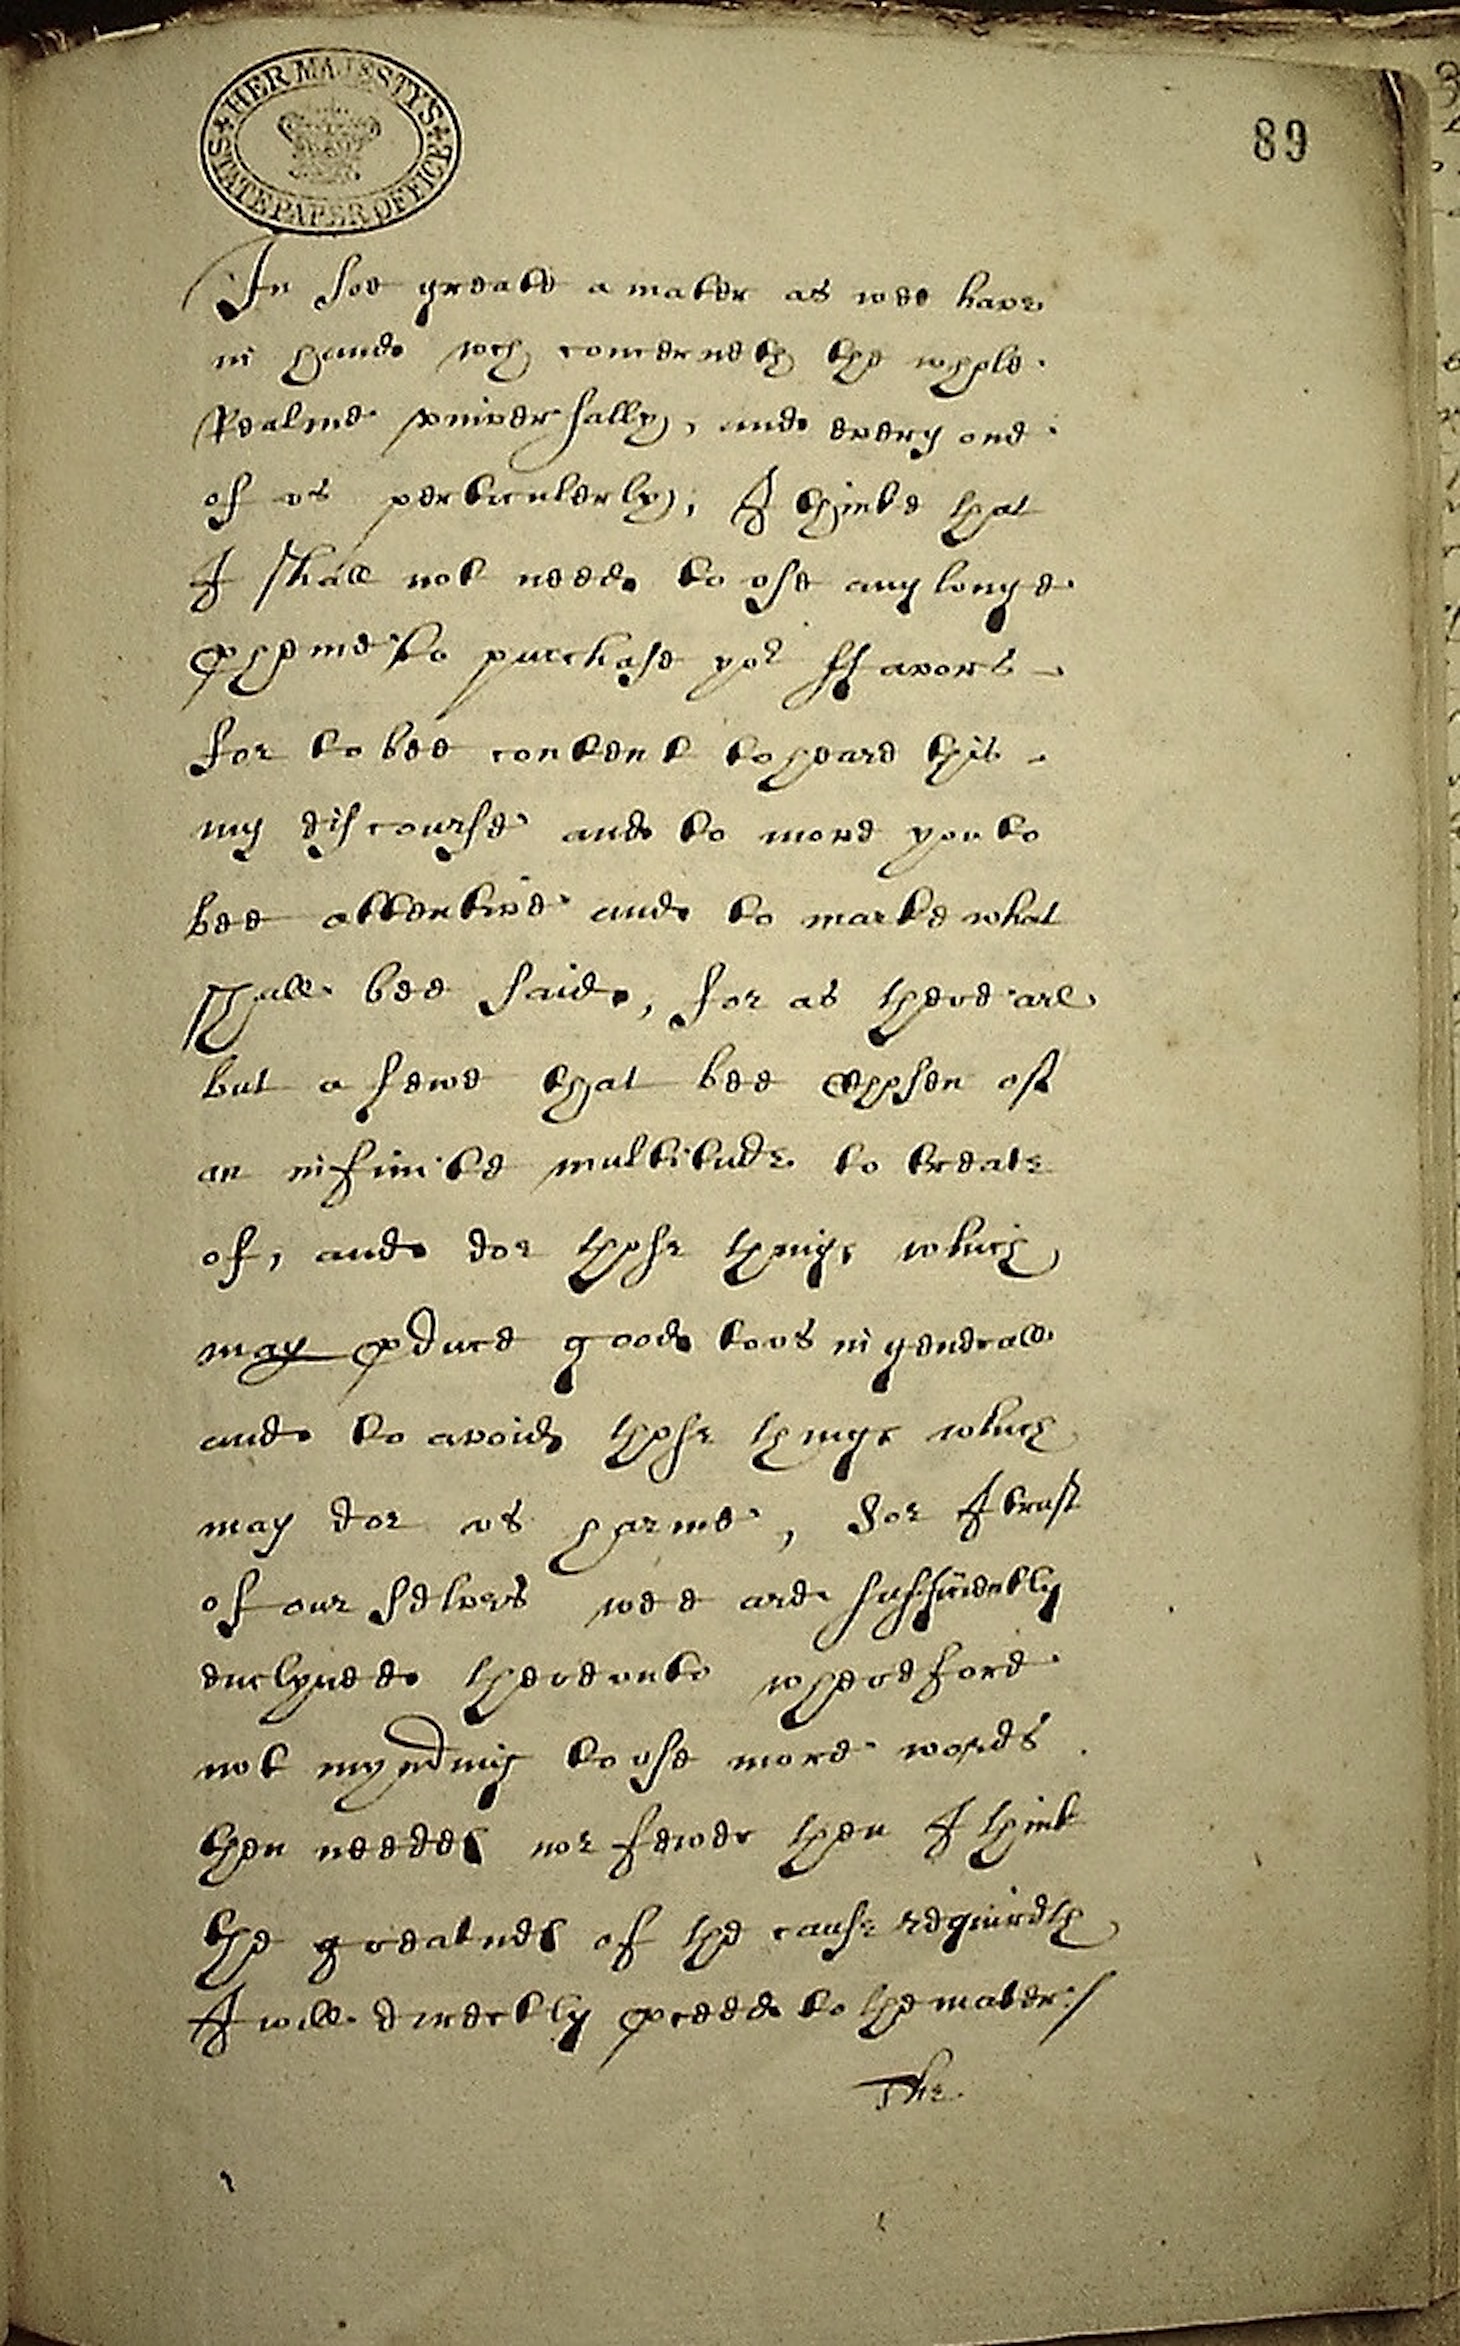 HER MAJESTY'S STATE PAPER OFFICE
89
In soe greate a mater as wee have
in hande wch concerneth the whole
Realme universally, and every one
of us perticulerly, I thinke that
I shall not neede to use any longe
pheme to purchase yor ffavors
for to bee content to heare this
my discourse and to move you to
bee attentive and to marke what
shall bee saide, for as there are
but a fewe that bee chosen of
an infinite multitude to treate
of, and doe those things which
may pduce good to us in generall
and to avoid those things which
may doe us harme, for I trust
of our selvers wee are sufficiently
enclyned thereunto wherefore
not myndinig to use more words
then needes nor fewer then I think
the greatnes of the cause requireth
I will directly pceede to the mater /
The